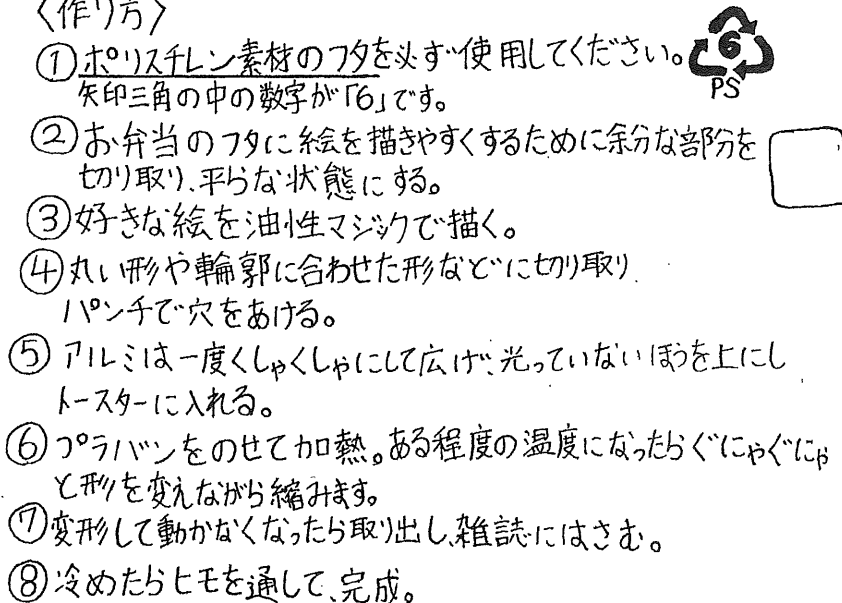 〈作り方〉
①ポリスチレン素材のフタを必ず使用してください。
6
PS
矢印三角の中の数字が「6」です。
②お弁当のフタに絵を描きやすくするために余分な部分を
切り取り、平らな状態にする。
③好きな絵を油性マジックで描く。
④丸い形や輪郭に合わせた形などに切り取り
パンチで穴をあける。
⑤アルミは一度くしゃくしゃにして広げ、光っていないほうを上にし
トースターに入れる。
⑥プラバンをのせて加熱。ある程度の温度になったらぐにゃぐにゃ
と形を変えながら縮みます。
⑦変形して動かなくなったら取り出し、雑誌にはさむ。
⑧冷めたらヒモを通して、完成。